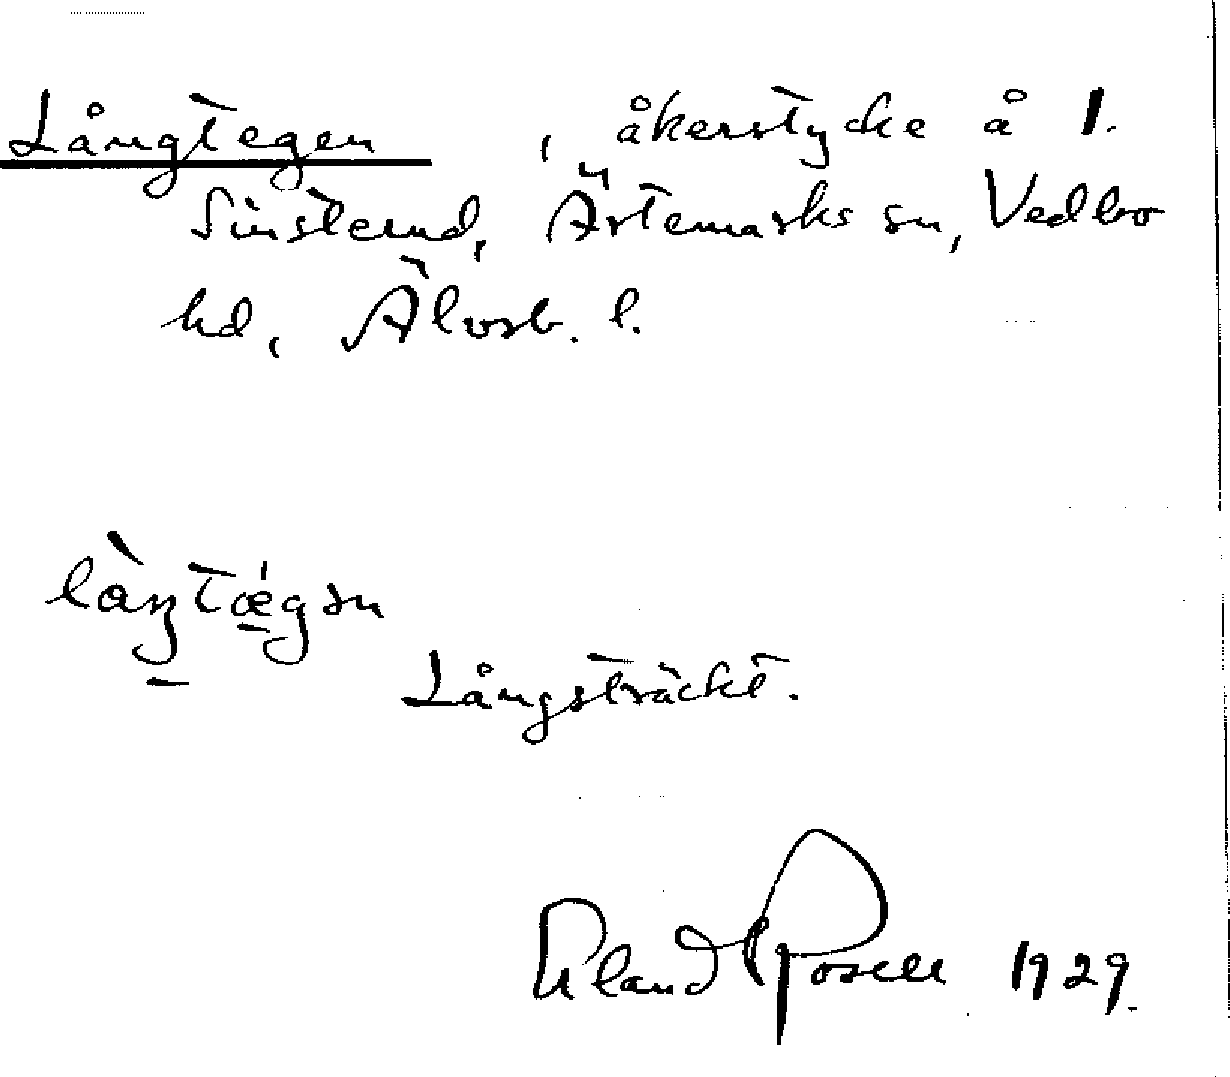 Långtegen, åkerstycke å 1.
Sinsterud, Ärtemarks sn, Vedbo
hd, Älvsb. l.
Långsträckt.
Erland Rosell 1929.